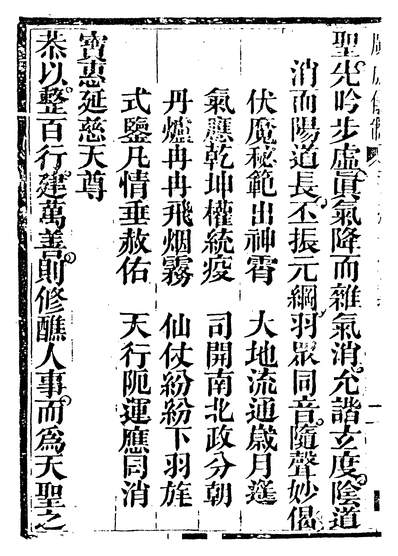 廣成儀制
聖兂吟步虛眞氣降而雜氣消允諧玄度陰道
消而陽道長丕振元綱羽眾同音隨聲妙偈
伏魔秘範出神霄 大地流通歲月遙
氣應乾坤權統疫 司開南北政分朝
丹爐冉冉飛烟霧 仙仗紛紛下羽旌
式鑒凡情垂赦佑 天行阨運應同消
寶惠延慈天尊
恭以整百行建萬善則修醮人事而爲天聖之